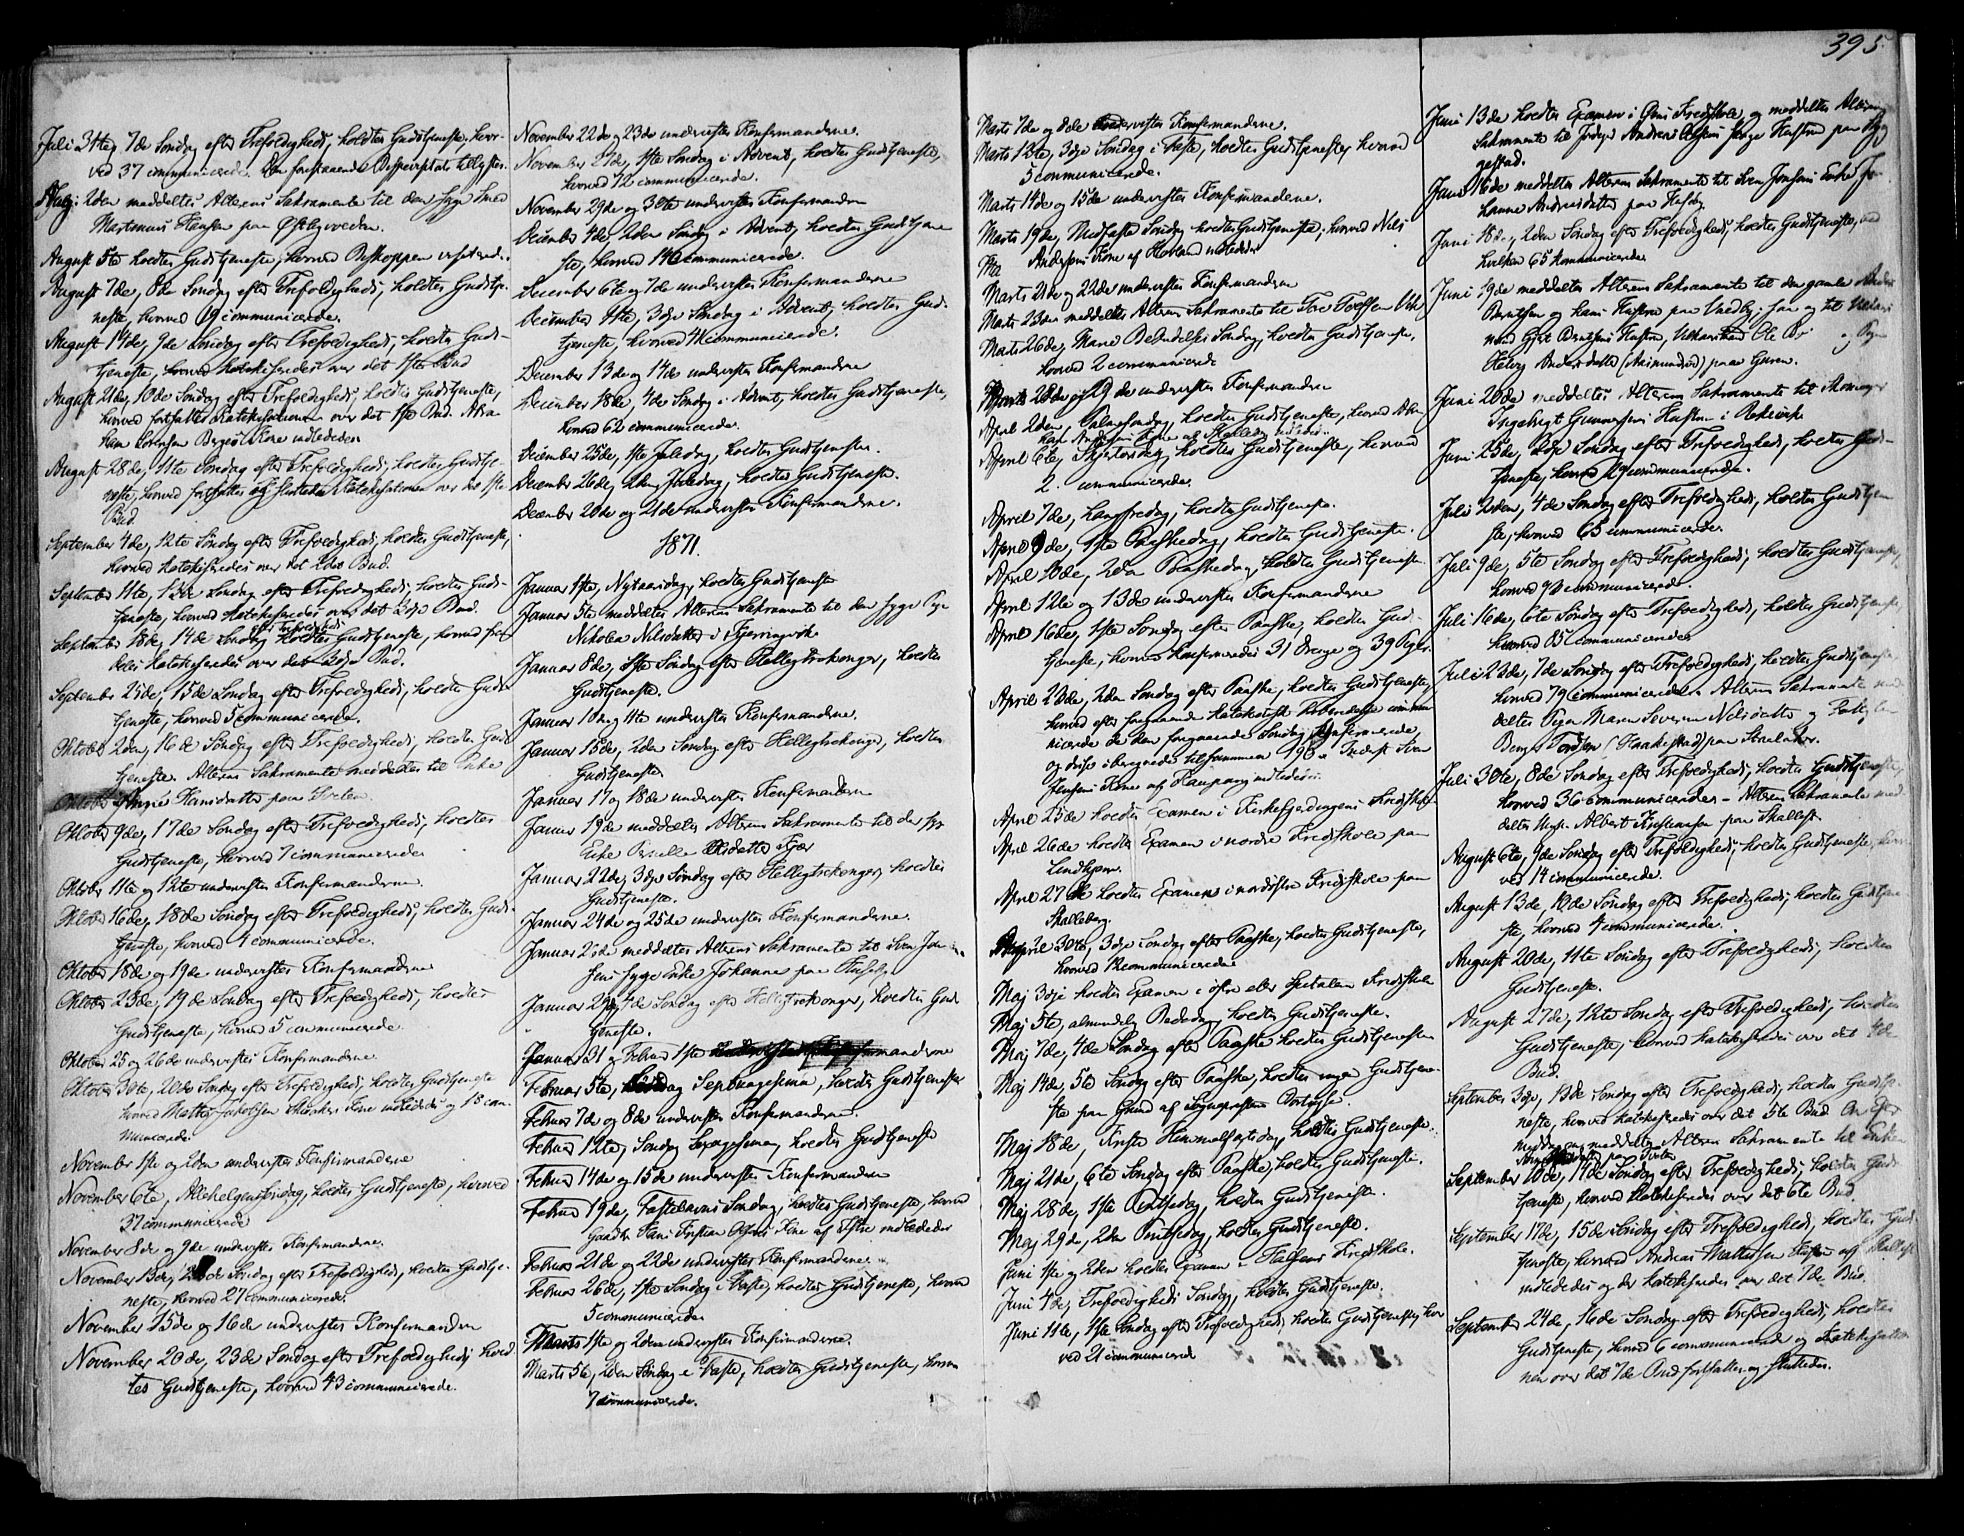 395.
Juli 31te, 7de Søndag efter Trefoldighed, holdtes Gudstjeneste, hvor-
ved 37 communicerede. Den forestaaende Bispevisitats tillystes.
2den meddeltes Alterens Sakramente til den syge Smed
Martinius Hansen paa
August 5te holdtes Gudstjeneste, hvorved Biskoppen visiterede.
August 7de, 8de Søndag efter Trefoldighed, holdtes Gudstje-
neste, hvorved 19 communicerede.
August 14de, 9de Søndag efter Trefoldighed, holdtes Guds-
tjeneste, hvorved katekiseredes over det 1ste Bud
August 21de, 10de Søndag efter Trefoldighed, holdtes Gudstjeneste,
hvorved fortsattes Katekisationen over det 1ste Bud. Abra-
ham Sørensen Kone indlededes
August 28de, 11te Søndag efter Trefoldighed, holdtes Gudstje-
neste, hvorved fortsattes og sluttedes Katekisationen over det 1ste
Bud.
September 4de, 12te Søndag efter Trefoldighed, holdtes Gudstjeneste,
hvorved katekiseredes over det 2det Bud.
September 11te, 13de Søndag efter Trefoldighed, holdtes Guds-
tjeneste, hvorved katekiseredes over det 3dje Bud.
September 18de, 14de Søndag efter Trefoldighed holdtes Gudstjeneste, hvorved frem-
deles katekiseredes over det 3dje Bud.
September 25de, 15de Søndag efter Trefoldighed, holdtes Guds-
tjeneste, hvorved 5 communicerede.
Oktober 2den, 16de Søndag efter Trefoldighed, holdtes Guds-
tjeneste. Alterens Sakramente meddeltes til Enke
Hansdatter paa Tveten
Oktober 9de, 17de Søndag efter Trefoldighed, holdtes
Gudstjeneste, hvorved 7 communicerede
Oktober 11te og 12te undervistes Konfirmanderne.
Oktober 16de, 18de Søndag efter Trefoldighed, holdtes Guds-
tjeneste, hvorved 4 communicerede.
Oktober 18de og 19de undervistes Konfirmanderne
Oktober 23de, 19de Søndag efter Trefoldighed, holdtes
Gudstjeneste, hvorved 5 communicerede.
Oktober 25 og 26de undervistes Konfirmanderne.
Oktober 30te, 20de Søndag efter Trefoldighed, holdtes Gudstjeneste
hvorved Mathis Jakobsen Kone indlededes og 18 com-
municerede.
November 1ste og 2den undervistes Konfirmanderne
November 6te, Allehelgens Søndag, holdtes Gudstjeneste, hvorved
37 communicerede
November 8de og 9de undervistes Konfirmanderne.
November 13de, Søndag efter Trefoldighed, holdtes Gudstje-
neste, hvorved 27 communicerede.
November 15de og 16de undervistes Konfirmanderne
November 20de, 23de Søndag efter Trefoldighed hold-
tes Gudstjeneste, hvorved 43 communicerede.
November 22de og 23de undervistes Konfirmanderne.
November 27de, 1ste Søndag i Advent, holdtes Gudstjeneste,
hvorved 72 communicerede.
November 29de og 30te undervistes Konfirmanderne
December 4de, 2den Søndag i Advent, holdtes Gudstjene-
ste, hvorved 140 communicerede.
December 6te og 7de undervistes Konfirmanderne
December 11te, 3dje Søndag i Advent, holdtes Guds-
tjeneste, hvorved 41 communicerede.
December 13de og 14de undervistes Konfirmanderne
December 18de, 4de Søndag i Advent, holdtes Gudstjeneste,
hvorved 62 communicerede.
December 25de, 1ste Juledag, holdtes Gudstjeneste.
December 26de, 2den Juledag, holdtes Gudstjeneste.
December 20de og 21de undervistes Konfirmanderne.
1871.
Januar 1ste, Nytaarsdag, holdtes Gudstjeneste
Januar 5te meddeltes Alterens Sakramente til den syge Pige
Nikolea Nilsdatter i Bjerringvik
Januar 8de, 1ste Søndag efter Helligtrekonger, holdtes
Gudstjeneste.
Januar 10 og 11te undervistes Konfirmanderne.
Januar 15de, 2den Søndag efter Helligtrekonger, holdtes
Gudstjeneste.
Januar 17 og 18de undervistes Konfirmanderne
Januar 19de meddeltes Alterens Sakramente til den syge
Enke Pernille
Januar 22de, 3dje Søndag efter Helligtrekonger, holdtes
Gudstjeneste.
Januar 24de og 25de undervistes Konfirmanderne.
Januar 26de meddeltes Alterens Sakramente til Sven Jon-
sens syge Enke Johanne paa Huseby
Januar 29de, 4de Søndag efter Helligtrekonger, holdtes Guds-
tjeneste.
Januar 31 og Februar 1ste undervistes Konfirmanderne
Februar 5te, Søndag Septuagesima, holdtes Gudstjeneste
Februar 7de og 8de undervistes Konfirmanderne.
Februar 12te, Søndag Sexagesima, holdtes Gudstjeneste
Februar 14de og 15de undervistes Konfirmanderne
Februar 19de, Fastelavns Søndag, holdtes Gudstjeneste, hvorved
Hans Kristian Olsens Kone af indlededes
Februar 21de og 22de undervistes Konfirmanderne
Februar 26de, 1ste Søndag i Faste, holdtes Gudstjeneste, hvorved
5 communicerede
Marts 1ste og 2den undervistes Konfirmanderne.
Marts 5te, 2den Søndag i Faste, holdtes Gudstjeneste, hvorved
7 communicerede.
Marts 7de og 8de undervistes Konfirmanderne.
Marts 12te, 3dje Søndag i Faste, holdtes Gudstjeneste, hvorved
5 communicerede.
Marts 14de og 15de undervistes Konfirmanderne.
Marts 19de, Midfaste Søndag holdtes Gudstjeneste, hvorved Nils
Andersens Kone af Hovland indlededes
Marts 21de og 22de undervistes Konfirmanderne
Marts 23de meddeltes Alterens Sakramente til
Marts 26de, Mariæ Bebudelses Søndag, holdtes Gudstjeneste,
hvorved 2 communicerede
Marts 28de og 29de undervistes Konfirmanderne
April 2den, Palmesøndag, holdtes Gudstjeneste, hvorved
Andersens Kone af indlededes.
April 6te, Skjertorsdag, holdtes Gudstjeneste, hvorved
2 communicerede.
April 7de, Langfredag, holdtes Gudstjeneste.
April 9de, 1ste Paaskedag, holdtes Gudstjeneste.
April 10de, 2den Paaskedag, holdtes Gudstjeneste.
April 12te og 13de undervistes Konfirmanderne
April 16de, 1ste Søndag efter Paaske, holdtes Guds-
tjeneste, hvorved konfirmeredes 31 Drenge og 39 Piger.
April 23de, 2den Søndag efter Paaske, holdtes Gudstjeneste,
hvorved efter foregaaende katekisatorisk commu-
nicerede de den foregaaende Søndag Konfirmerede,
og disse iberegnede tilsammen
Jensens Kone af Kaupang indlededes.
April 25de holdtes Examen i Kirkefjerdingens Kredsskole
April 26de holdtes Examen i nordre Kredsskole paa
Lindhjem.
April 27de holdtes Examen i nordøstre Kredsskole paa
Skalleberg.
April 30te, 3dje Søndag efter Paaske, holdtes Gudstjeneste,
hvorved 12 communicerede
Maj 3dje holdtes Examen i øfre eller Kredsskole
Maj 5te, almindelig Bededag, holdtes Gudstjeneste.
Maj 7de, 4de Søndag efter Paaske holdtes Gudstjeneste
Maj 14de, 5te Søndag efter Paaske, holdtes ingen Gudstjene-
ste paa Grund af Sognepræstens Bortreise.
Maj 18de, Kristi Himmelfartsdag, holdtes Gudstjeneste.
Maj 21de, 6te Søndag efter Paaske, holdtes Gudstjeneste.
Maj 28de, 1ste Pintsedag, holdtes Gudstjeneste.
Maj 29de, 2den Pintsedag, holdtes Gudstjeneste.
Juni 1ste og 2den holdtes Examen i Kredsskole.
Juni 4de, Trefoldigheds Søndag, holdtes Gudstjeneste.
Juni 11te, 1ste Søndag efter Trefoldighed, holdtes Gudstjeneste, hvor-
ved 21 communicerede
Juni 13de holdtes Examen i Kredsskole, og meddeltes Alterens
Sakramente til Andreas Olsens syge Hustru paa
Juni 16de meddeltes Alterens Sakramente til Sven Jonsens Enke Jo-
hanne Andersdatter paa Huseby
Juni 18de, 2den Søndag efter Trefoldighed, holdtes Gudstjeneste, ved
hvilken 65 kommunicerede
Juni 19de meddeltes Alterens Sakramente til den gamle
Berntsen og hans Hustru paa og til
Berntsens Hustru, og Pigen
Andersdatter paa
Juni 20de meddeltes Alterens Sakramente til Skomager
Ingebregt Gunnersens Hustru i
Juni 25de, 3dje Søndag efter Trefoldighed, holdtes Guds-
tjeneste, hvorved 29 communicerede.
Juli 2den, 4de Søndag efter Trefoldighed, holdtes Gudstjene-
ste, hvorved 65 communicerede.
Juli 9de, 5te Søndag efter Trefoldighed, holdtes Gudstjeneste,
hvorved communicerede.
Juli 16de, 6te Søndag efter Trefoldighed, holdtes Gudstjeneste,
hvorved 85 communicerede
Juli 23de, 7de Søndag efter Trefoldighed, holdtes Gudstjeneste,
hvorved 79 communicerede. Alterens Sakramente med-
deltes Pigen Maren Severine Nilsdatter og
paa
Juli 30te, 8de Søndag efter Trefoldighed, holdtes Gudstjeneste,
hvorved 36 communicerede. – Alterens Sakramente med-
deltes Albert Kristensen paa
August 6te, 9de Søndag efter Trefoldighed, holdtes Gudstjeneste, hvor-
ved 14 communicerede.
August 13de, 10de Søndag efter Trefoldighed, holdtes Gudstjene-
ste, hvorved 4 communicerede.
August 20de, 11te Søndag efter Trefoldighed, holdtes
Gudstjeneste.
August 27de, 12te Søndag efter Trefoldighed, holdtes
Gudstjeneste, hvorved katekiseredes over det 4de
Bud.
September 3dje, 13de Søndag efter Trefoldighed, holdtes Gudstje-
neste, hvorved katekiseredes over det 5te Bud Om Efter-
middagen meddeltes Alterens Sakramente til Enken
paa Tveten
September 10de, 14de Søndag efter Trefoldighed, holdtes Guds-
tjeneste, hvorved katekiseredes over det 6te Bud.
September 17de, 15de Søndag efter Trefoldighed, holdtes Guds-
tjeneste, hvorved Andreas Mathisens af
indlededes og der katekiseredes over det 7de Bud.
September 24de, 16de Søndag efter Trefoldighed, holdtes
Gudstjeneste, hvorved 6 communicerede og Katekisatio-
nen over det 7de Bud fortsattes og sluttedes.